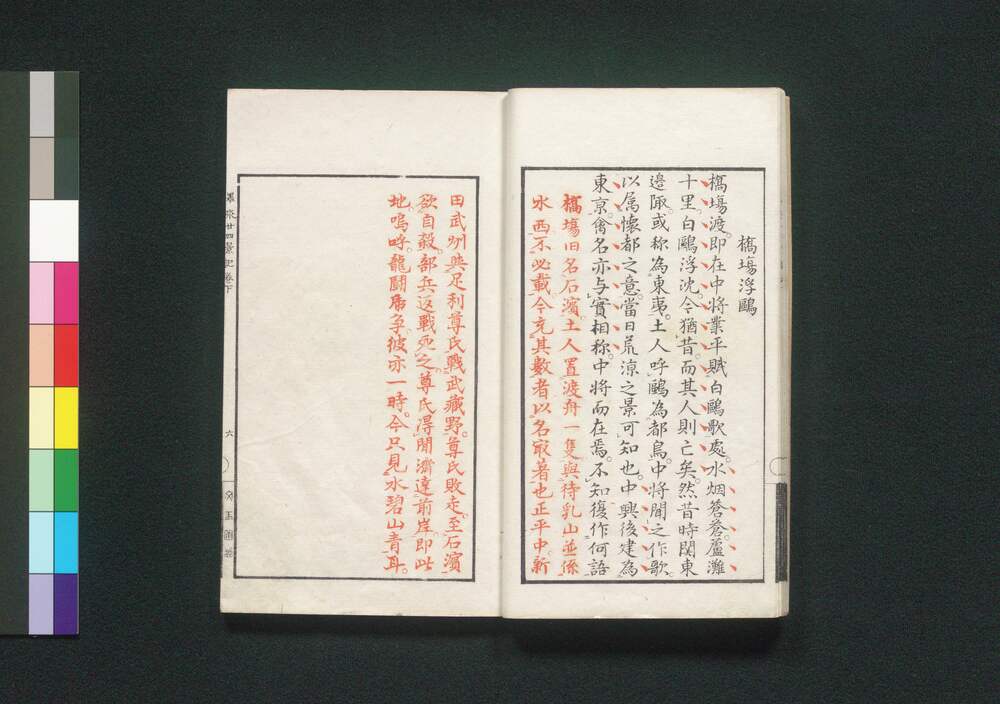 橋塲浮鷗
橋塲渡。即在中将業平賦白鷗歌處。水烟蒼蒼。蘆灘
十里白鷗浮沈。今猶昔。而其人則亡矣。然昔時関東
邉陬。或称為東夷。土人呼鷗為都鳥。中将聞之作歌。
以属懐都之意。當日荒凉之景可知也。中興後建為
東京。禽名亦与實相称。中将而在焉。不知復作何語
橋塲旧名石濱。土人置渡舟一隻。與待乳山並係
水西。不必載。今充其數者。以名㝡著也。正平中。新
田武州與足利尊氏戰武藏野。尊氏敗走。至石濱
欲自殺。部兵返戰死之。尊氏得間濟達前岸。即此
地。嗚呼。龍闘乕争。彼亦一時。今只見水碧山青耳。
墨水廿四景記巻下
六